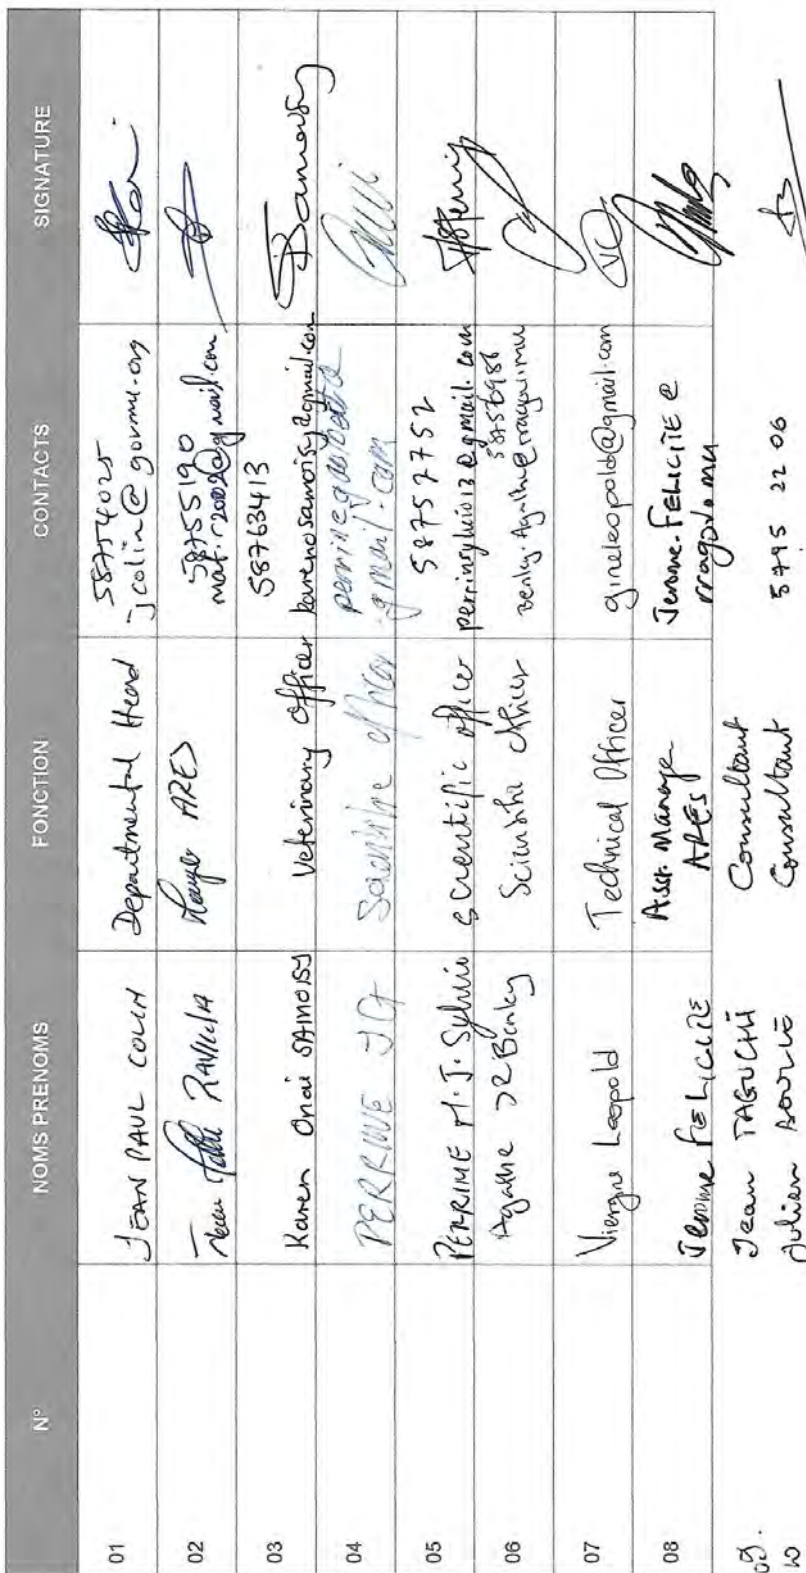 N° NOMS PRENOMS FONCTION CONTACTS SIGNATURE
01 JEAN PAUL COLIN Departmental Head 58754025
jcolin@govmu.org
02 ARES 58755190
03 Karen Onai SAMOISY Veterinary Officer 58763413
karenosamoisy@gmail.com
04 PERRINE JG Scientific officer
gmail.com
05 PERRINE M. J. Sylvio Scientific officer 58757752
perrinsylvio13@gmail.com
06 Agathe Scientific Officer
07 Viergne Leopold Technical Officer gineleopold@gmail.com
08 Jerome FELICITE Asst. Manager
ARES Jerome.FELICITE@
rragov.mu
09. Jean TAGUCHI Consultant
10 Julien Consultant 5795 22 06